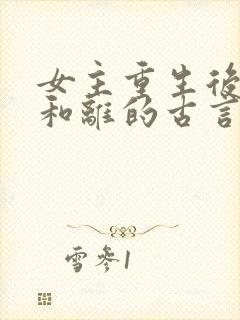 女主重生後
和離的古言
雪參1